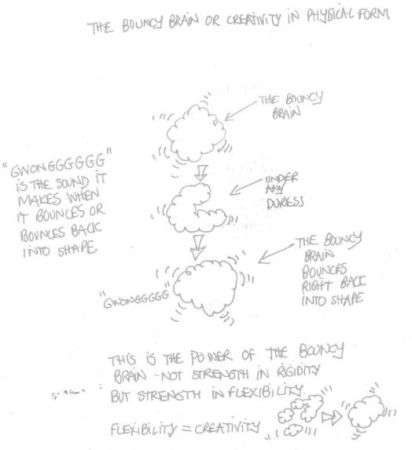 THE BOUNCY BRAIN OR CREATIVITY IN PHYSICAL FORM
THE BOUNCY
BRAIN
"GWONGGGGGG"
IS THE SOUND IT
MAKES WHEN
IT BOUNCES OR
BOUNCES BACK
INTO SHAPE
UNDER
ANY
DURESS
THE BOUNCY
BRAIN
BOUNCES
RIGHT BACK
INTO SHAPE
"GWONGGGG"
THIS IS THE POWER OF THE BOUNCY
BRAIN - NOT STRENGTH IN RIGIDITY
BUT STRENGTH IN FLEXIBILITY
FLEXIBILITY = CREATIVITY